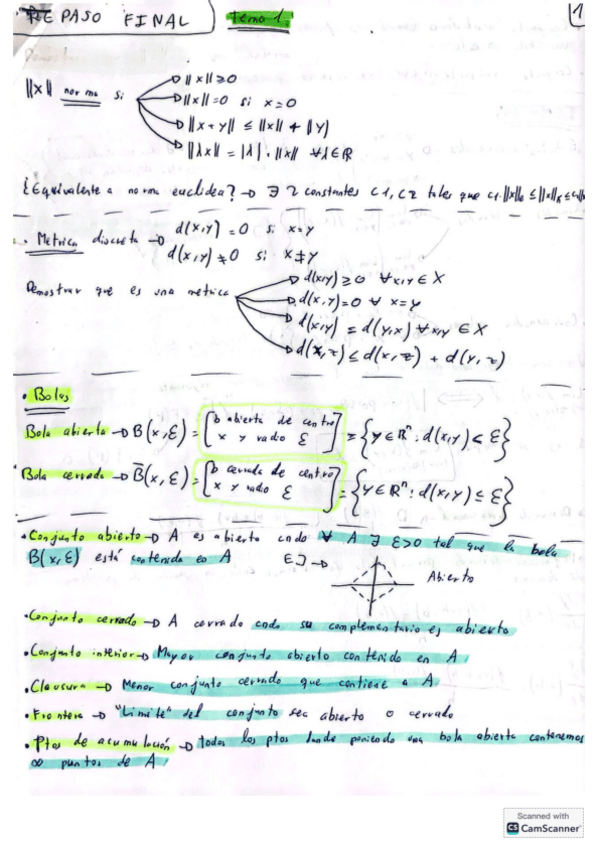 REPASO FINAL tema 1 1
||x|| norma si
||x|| ≥ 0
||x|| = 0 si x = 0
||x + y|| ≤ ||x|| + ||y||
||λx|| = |λ| · ||x|| ∀λ∈ℝ
¿Equivalente a norma euclidea? → ∃ 2 constantes c1, c2 tales que c1·||x||
· Metrica discreta → d(x,y) = 0 si x=y
d(x,y) ≠ 0 si x≠y
Demostrar que es una métrica
d(x,y) ≥ 0 ∀x,y ∈ X
d(x,y)=0 ∀ x=y
d(x,y) = d(y,x) ∀x,y ∈ X
d(x,z) ≤ d(x,z) + d(y,z)
· Bolas
Bola abierta → B(x,ε) = [b abierta de centro x y radio ε] = {y∈ℝⁿ: d(x,y) < ε}
Bola cerrada → B̄(x,ε) = [b cerrada de centro x y radio ε] = {y∈ℝⁿ: d(x,y) ≤ ε}
· Conjunto abierto → A es abierto cndo ∀ A ∃ ε>0 tal que la bola
B(x,ε) está contenida en A EJ → Abierto
· Conjunto cerrado → A cerrado cndo su complementario es abierto
· Conjunto interior → Mayor conjunto abierto contenido en A
· Clausura → Menor conjunto cerrado que contiene a A
· Frontera → "Limite" del conjunto sea abierto o cerrado
· Ptos de acumulación → todos los ptos donde poniendo una bola abierta contenemos
∞ puntos de A
Scanned with
CS CamScanner